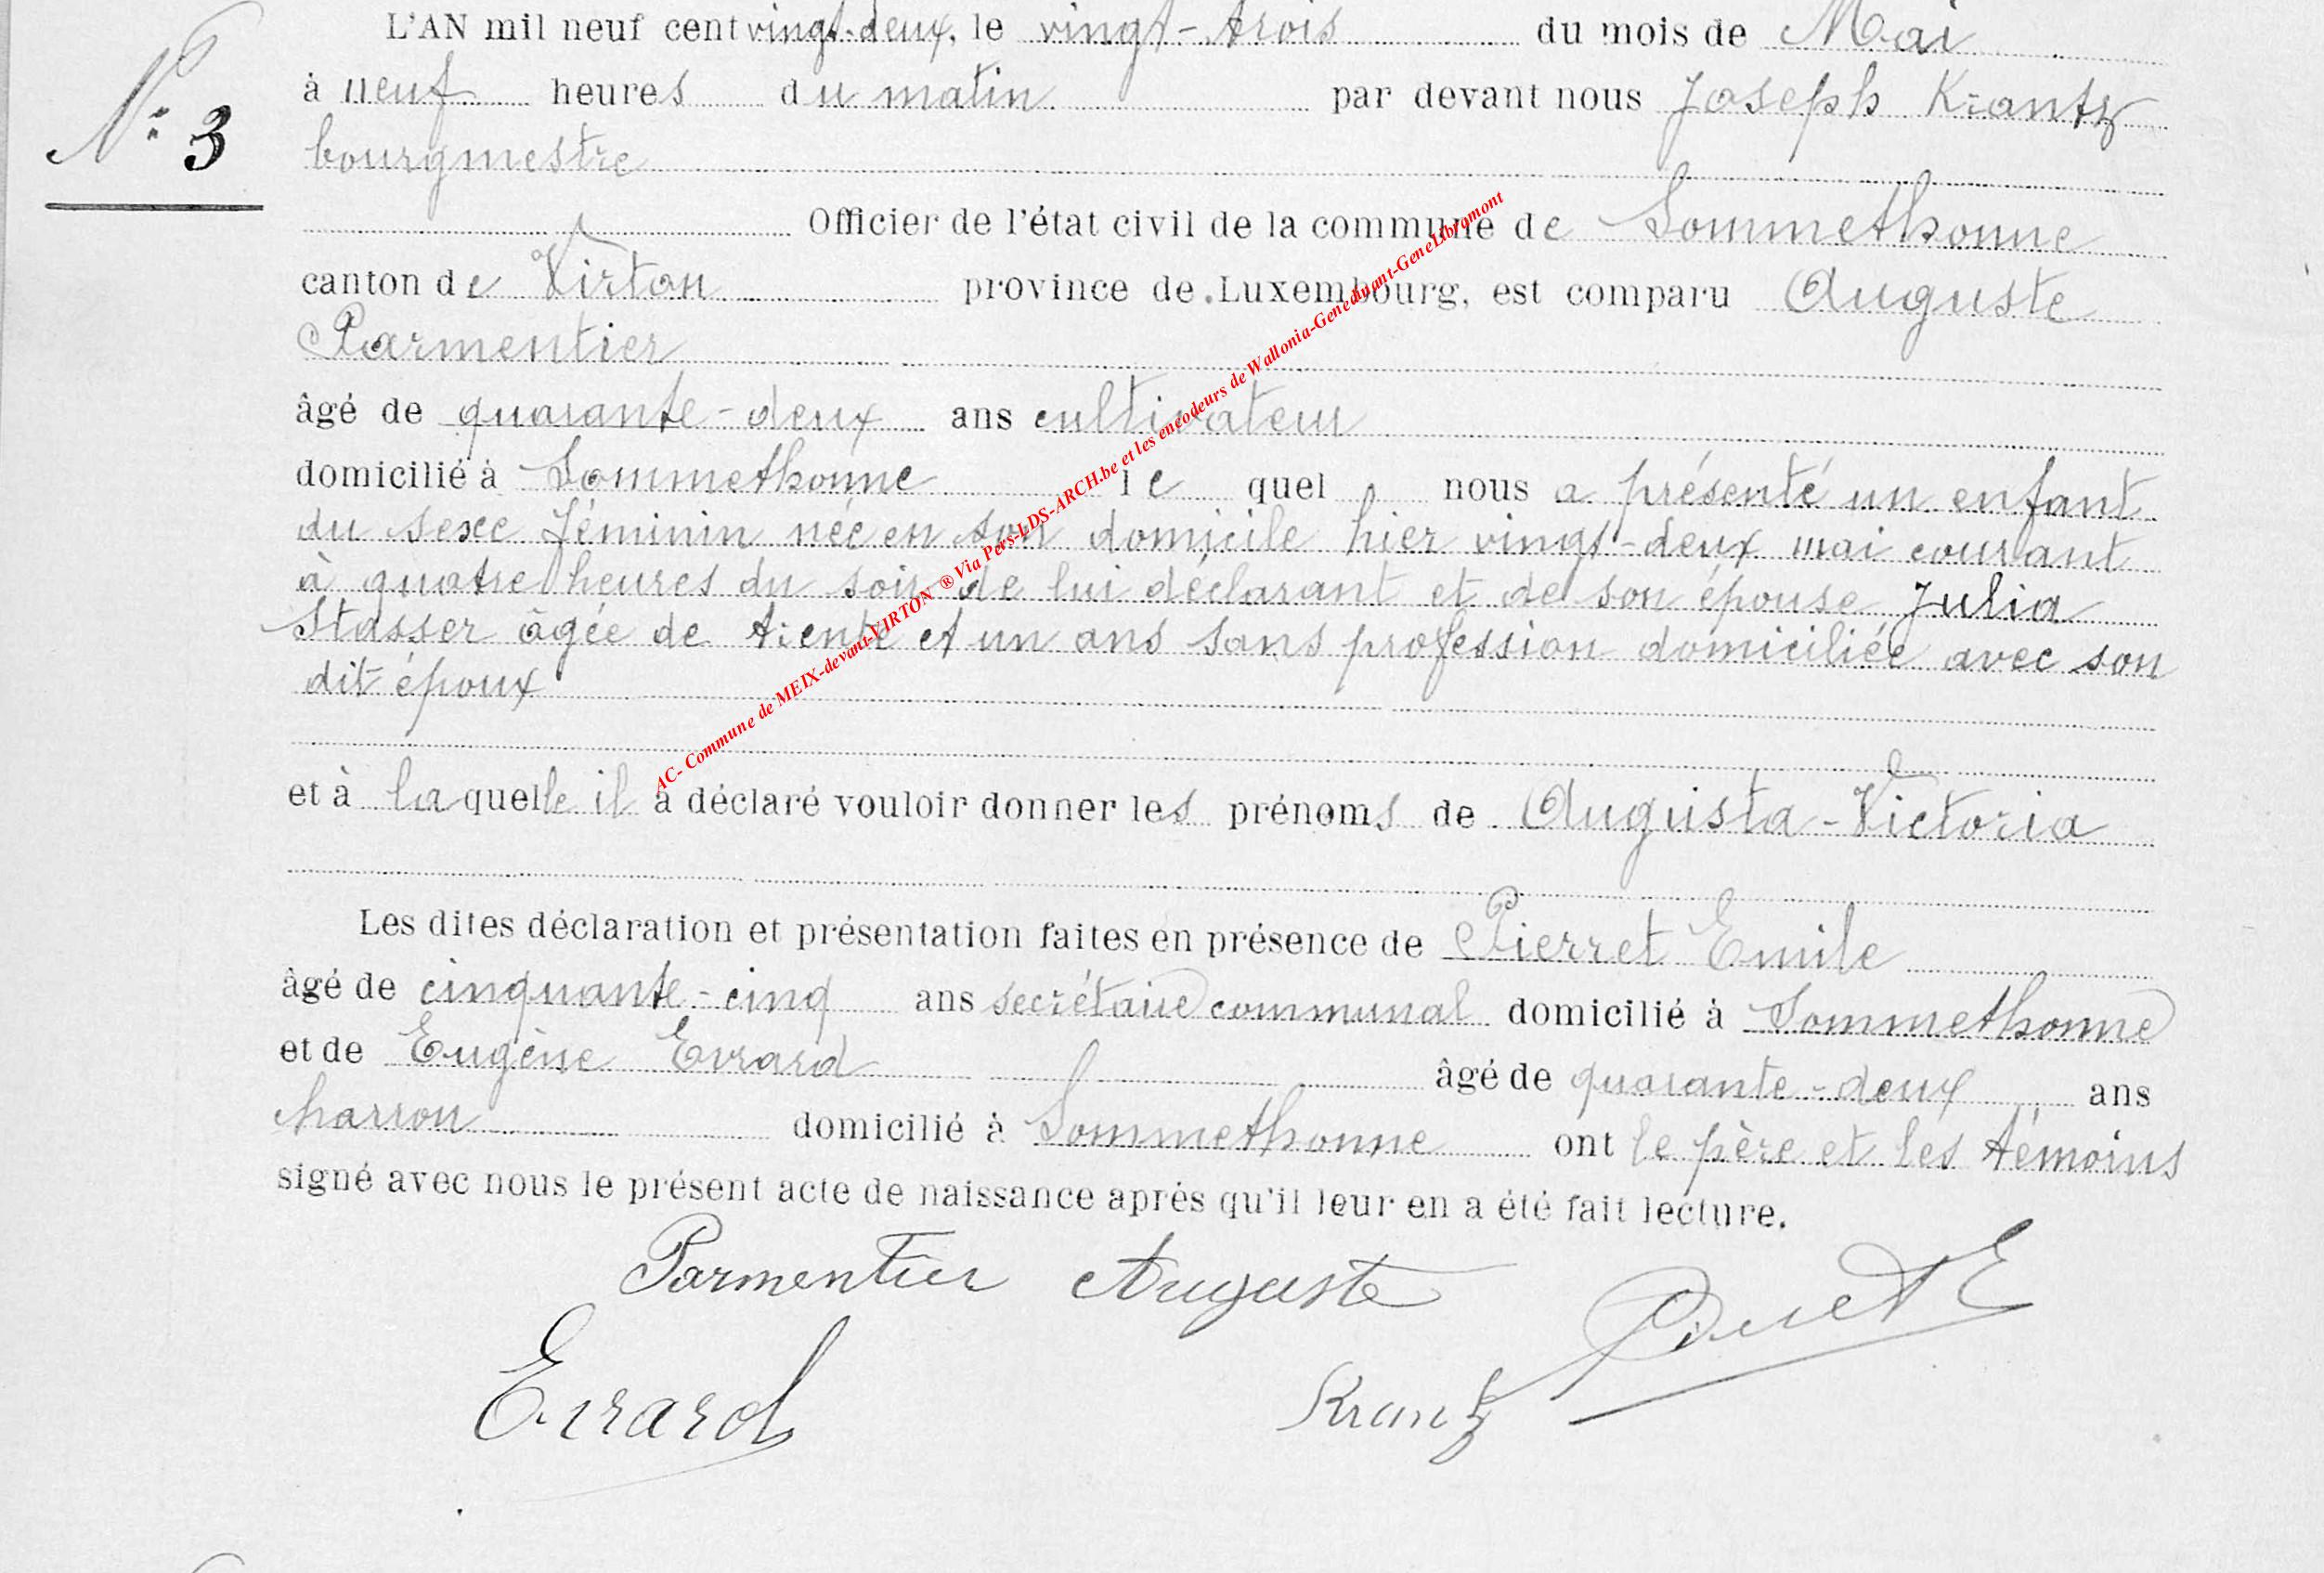 L'AN mil neuf cent vingt-deux, le vingt-trois du mois de Mai
N° 3
à neuf heures du matin par devant nous Joseph Krantz
bourgmestre
Officier de l'état civil de la commune de Sommethonne
canton de Virton province de Luxembourg, est comparu Auguste
Parmentier
âgé de quarante-deux ans cultivateur
domicilié à Sommethonne le quel nous a présenté un enfant
du sexe féminin née en son domicile hier vingt-deux mai courant
à quatre heures du soir de lui déclarant et de son épouse Julia
Stasser âgée de trente et un ans sans profession domiciliée avec son
dit époux
et à laquelle il a déclaré vouloir donner les prénoms de Augusta-Victoria
Les dites déclaration et présentation faites en présence de Pierret Emile
âgé de cinquante-cinq ans secrétaire communal domicilié à Sommethonne
et de Eugène Evrard âgé de quarante-deux ans
charron domicilié à Sommethonne ont le père et les témoins
signé avec nous le présent acte de naissance après qu'il leur en a été fait lecture.
Parmentier Auguste
Pierret E
Evrard
Krantz
AC- Commune de MEIX-devant-VIRTON ® Via Pers-LDS-ARCH.be et les encodeurs de Wallonia-Genedinant-GeneLibramont